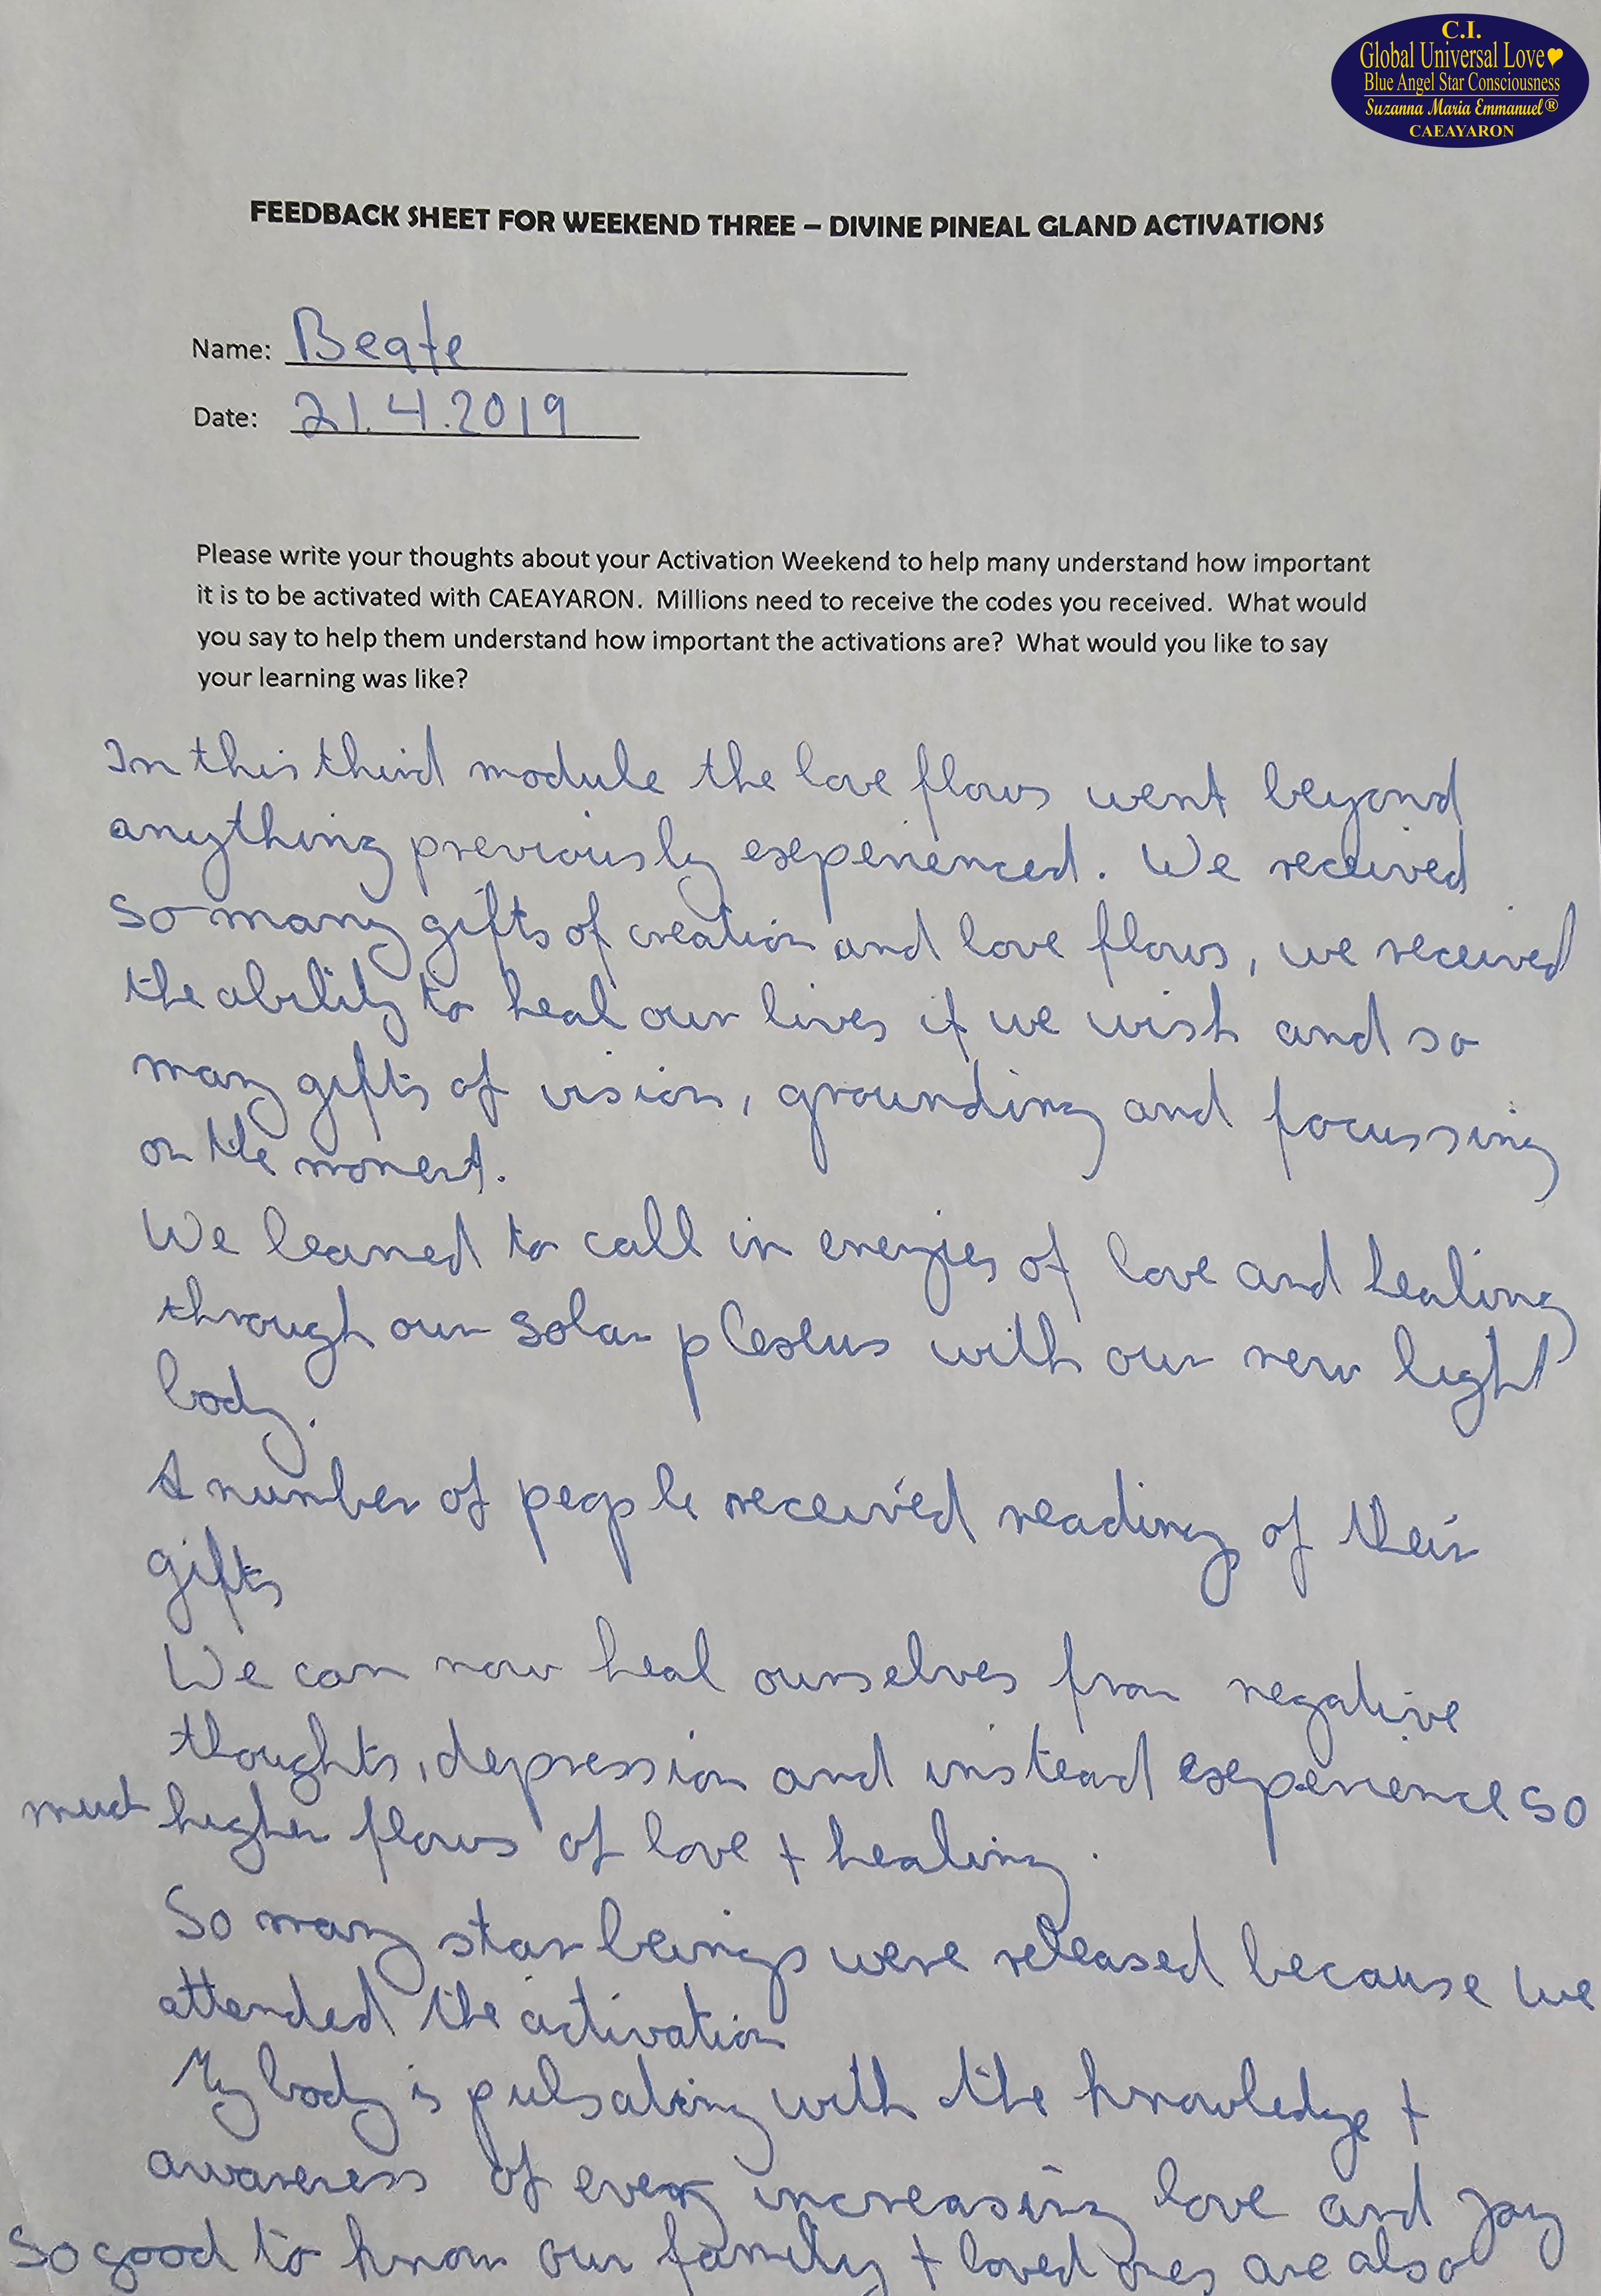 C.I.
Global Universal Love
Blue Angel Star Consciousness
Suzanna Maria Emmanuel®
CAEAYARON
FEEDBACK SHEET FOR WEEKEND THREE – DIVINE PINEAL GLAND ACTIVATIONS
Name: Beate
Date: 21.4.2019
Please write your thoughts about your Activation Weekend to help many understand how important
it is to be activated with CAEAYARON.  Millions need to receive the codes you received.  What would
you say to help them understand how important the activations are?  What would you like to say
your learning was like?
In this third module the love flows went beyond
anything previously experienced. We received
so many gifts of creation and love flows, we received
the ability to heal our lives if we wish and so
many gifts of vision, grounding and focussing
on the moment.
We learned to call in energies of love and healing
through our solar plexus with our new light
body.
A number of people received reading of their
gifts
We can now heal ourselves from negative
thoughts, depression and instead experience so
much higher flows of love + healing.
So many star beings were released because we
attended the activation
My body is pulsating with the knowledge +
awareness of every increasing love and joy
So good to know our family + loved ones are also